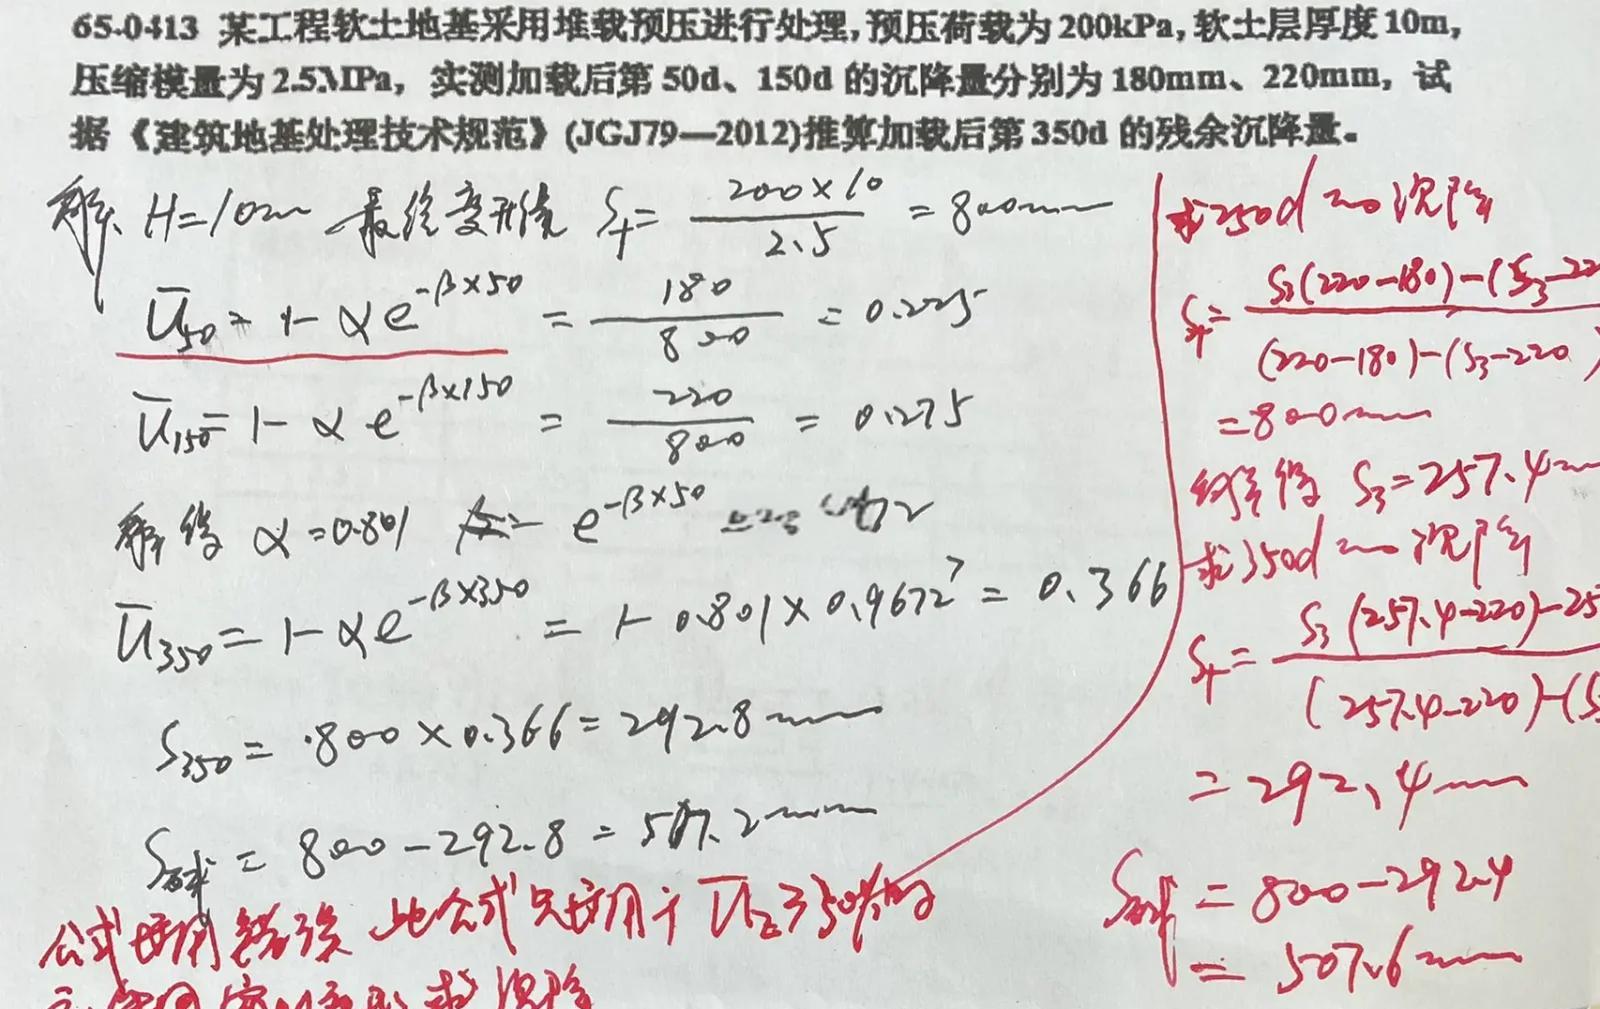 65-0413 某工程软土地基采用堆载预压进行处理,预压荷载为200kPa,软土层厚度10m,
压缩模量为2.5MPa, 实测加载后第50d、150d 的沉降量分别为180mm、220mm, 试
据《建筑地基处理技术规范》(JGJ79—2012)推算加载后第350d 的残余沉降量。
解: H=10m 最终变形值 Sf= 200×10 / 2.5 = 800mm
U̅50 = 1-αe^-β×50 = 180/800 = 0.225
U̅150 = 1-αe^-β×150 = 220/800 = 0.275
解得 α=0.801 e^-β×50
U̅350 = 1-αe^-β×350 = 1-0.801×0.9672^7 = 0.366
S350 = 800×0.366=292.8mm
S残 = 800-292.8=507.2mm
公式使用错误 此公式只适用于 U̅z≥30%的
求沉降
求250d 沉降
Sf= S3(220-180)-(S3-22 / (220-180)-(S3-220)
=800mm
解得 S3=257.4m
求350d 沉降
Sf= S3(257.4-220)-25 / (257.4-220)-(S
=292.4mm
S残 = 800-292.4
= 507.6mm